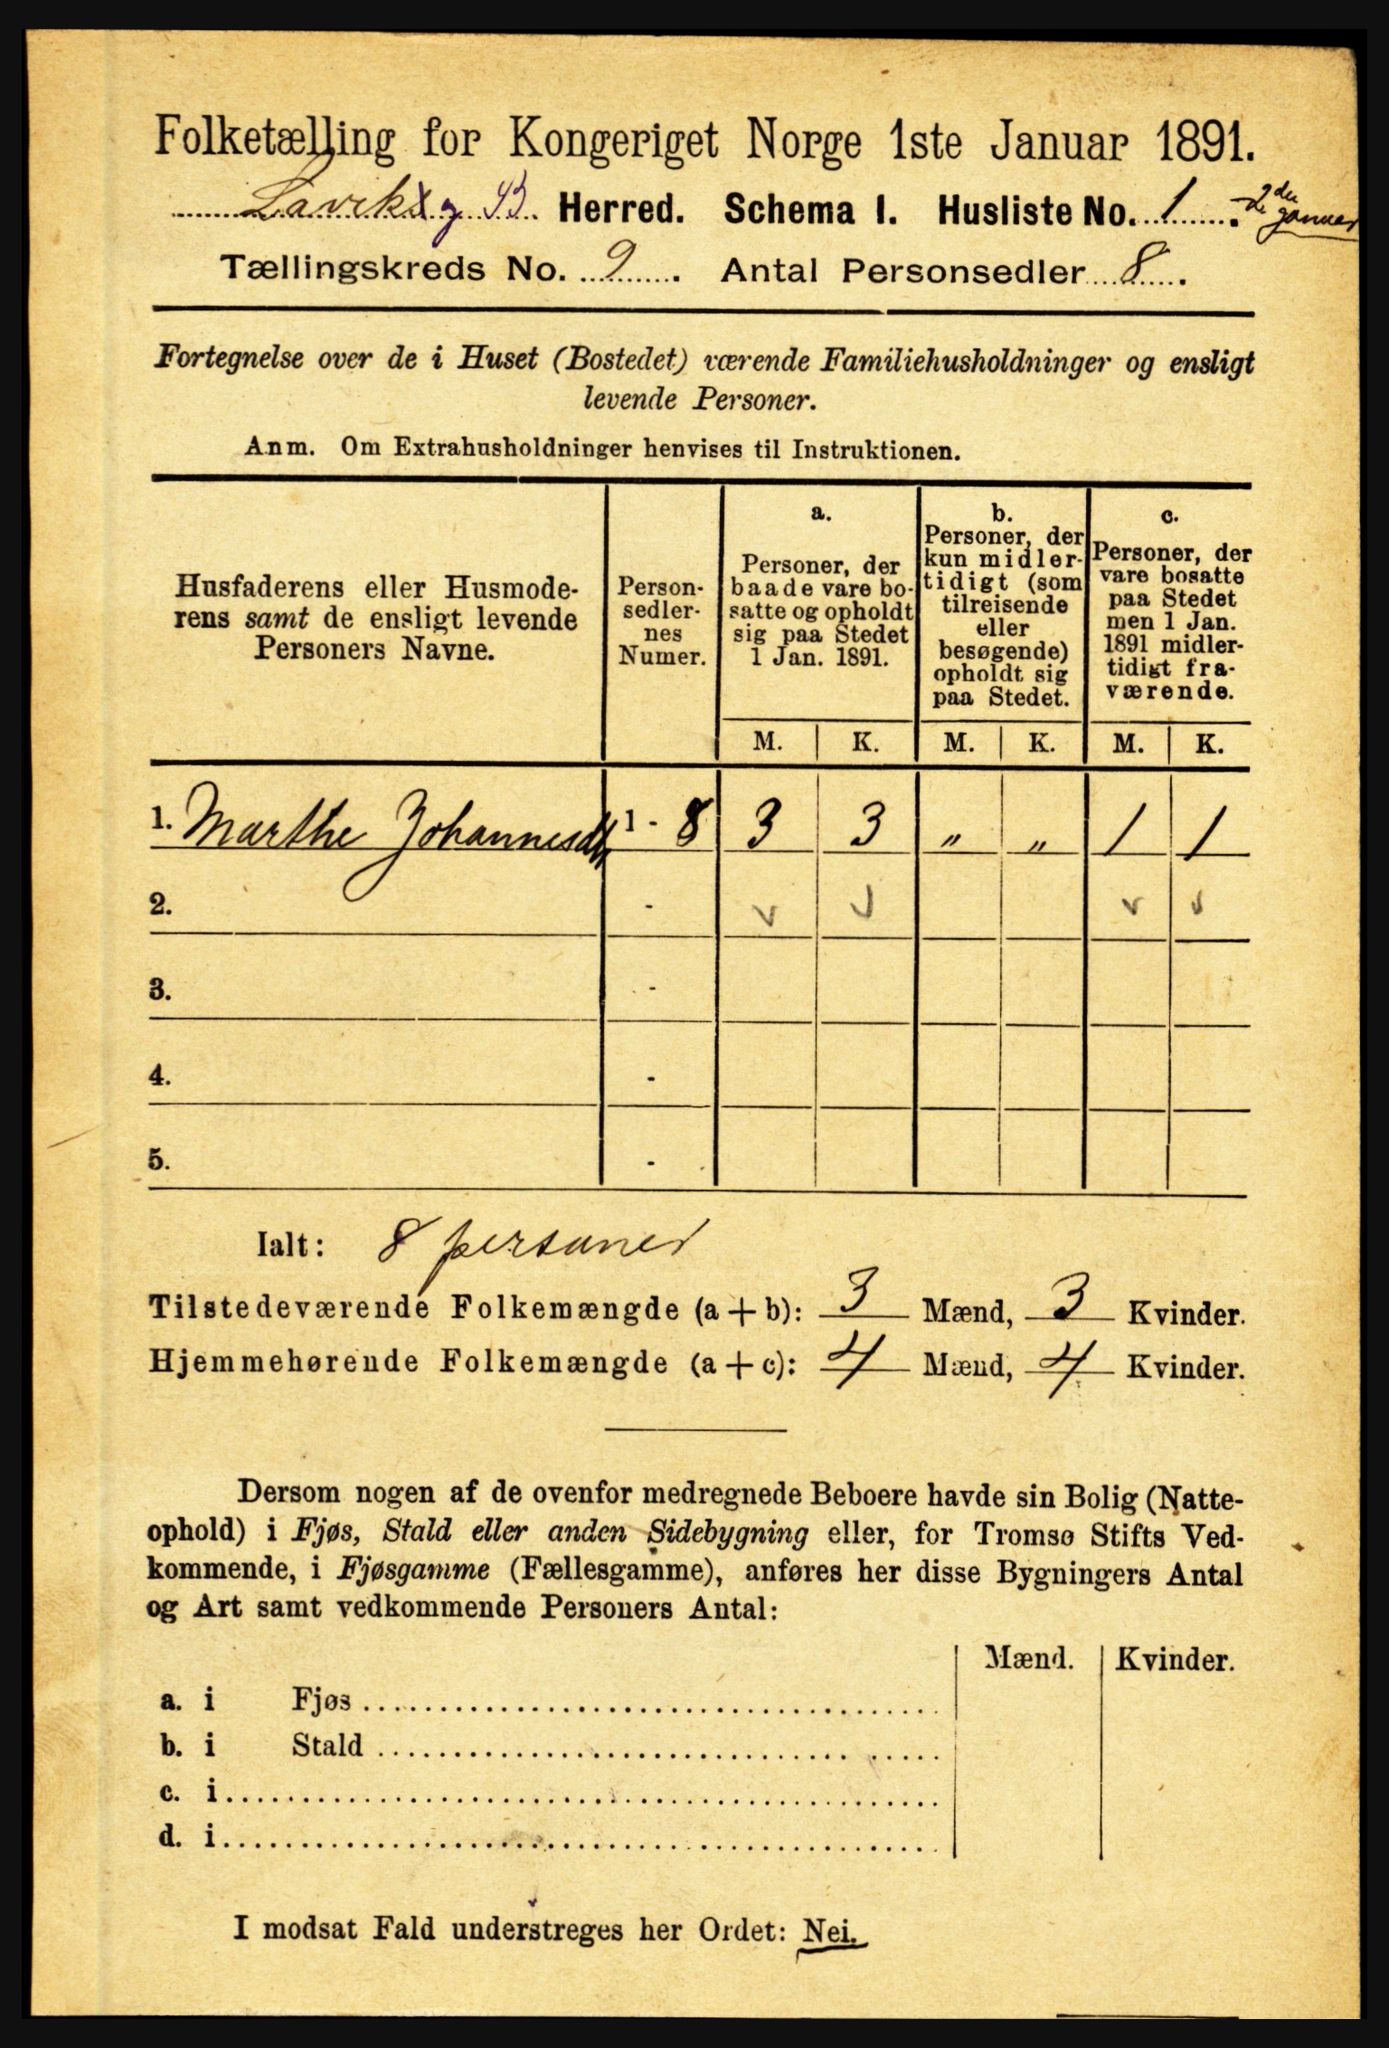 Folketælling for Kongeriget Norge 1ste Januar 1891.
Laviks og B. Herred. Schema I. Husliste No. 1. 2den Januar
Tællingskreds No. 9. Antal Personsedler 8.
Fortegnelse over de i Huset (Bostedet) værende Familiehusholdninger og ensligt
levende Personer.
Anm. Om Extrahusholdninger henvises til Instruktionen.
Husfaderens eller Husmode-
rens samt de ensligt levende
Personers Navne.
Person-
sedler-
nes
Numer.
a.
Personer, der
baade vare bo-
satte og opholdt
sig paa Stedet
1 Jan. 1891.
b.
Personer, der
kun midler-
tidigt (som
tilreisende
eller
besøgende)
opholdt sig
paa Stedet.
c.
Personer, der
vare bosatte
paa Stedet
men 1 Jan.
1891 midler-
tidigt fra-
værende.
M. K. M. K. M. K.
1. Marthe Johannesdtr 1 - 8 3 3 " " 1 1
2. -
3. -
4. -
5. -
Ialt: 8 personer
Tilstedeværende Folkemængde (a + b): 3 Mænd, 3 Kvinder.
Hjemmehørende Folkemængde (a + c): 4 Mænd, 4 Kvinder.
Dersom nogen af de ovenfor medregnede Beboere havde sin Bolig (Natte-
ophold) i Fjøs, Stald eller anden Sidebygning eller, for Tromsø Stifts Ved-
kommende, i Fjøsgamme (Fællesgamme), anføres her disse Bygningers Antal
og Art samt vedkommende Personers Antal:
Mænd. Kvinder.
a. i Fjøs
b. i Stald
c. i
d. i
I modsat Fald understreges her Ordet: Nei.